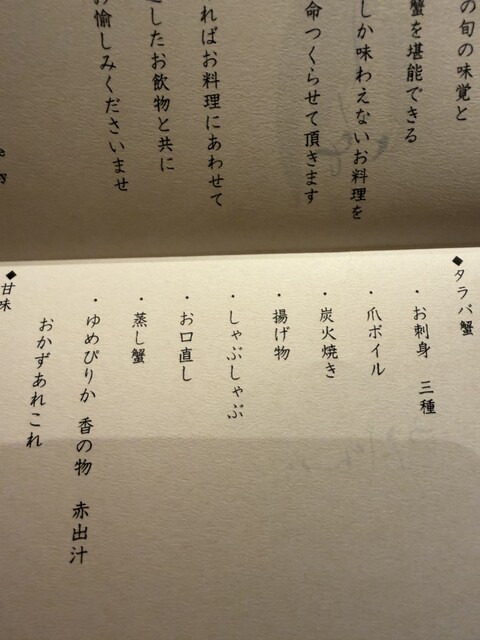 の旬の味覚と
蟹を堪能できる
しか味わえないお料理を
命つくらせて頂きます
ればお料理にあわせて
したお飲物と共に
お愉しみくださいませ
◆タラバ蟹
・お刺身 三種
・爪ボイル
・炭火焼き
・揚げ物
・しゃぶしゃぶ
・お口直し
・蒸し蟹
・ゆめぴりか 香の物 赤出汁
おかずあれこれ
◆甘味